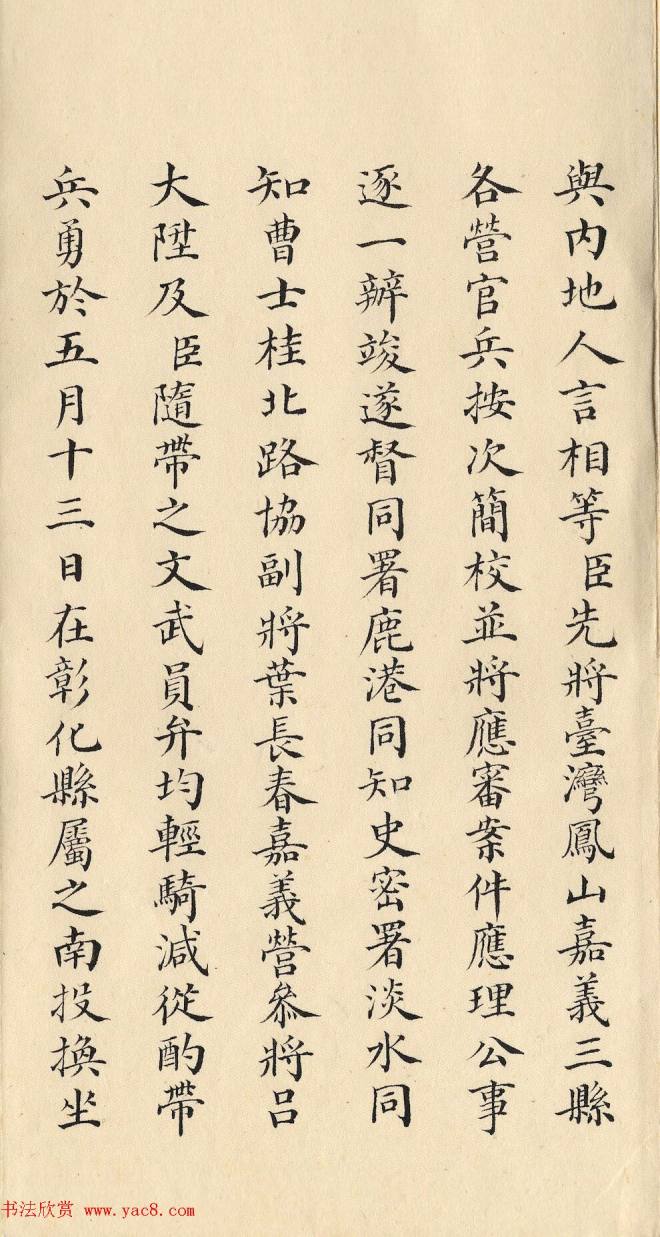 與內地人言相等臣先將臺灣鳳山嘉義三縣
各營官兵按次簡校並將應審案件應理公事
逐一辦竣遂督同署鹿港同知史密署淡水同
知曹士桂北路協副將葉長春嘉義營叅將呂
大陞及臣隨帶之文武員弁均輕騎減從酌帶
兵勇於五月十三日在彰化縣屬之南投換坐
书法欣赏 www.yac8.com